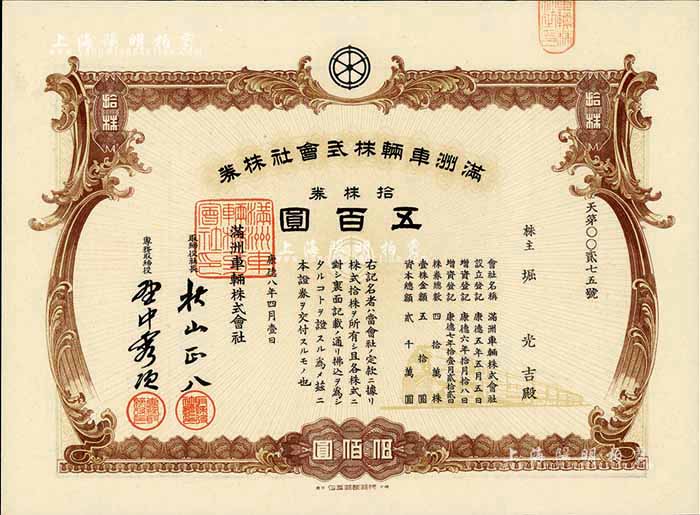 滿洲車輛株式會社株券
拾株券
五百圓
天第〇〇貳七五號
株主 堀 光吉殿
會社名稱 滿洲車輛株式會社
設立登記 康德五年五月五日
增資登記 康德六年拾月拾八日
增資登記 康德七年拾壹月貳拾貳日
株券總數 四拾萬株
壹株金額 五拾圓
資本總額 貳千萬圓
右記名者ハ當會社ノ定款ニ據リ
株式拾株ヲ所有シ且各株式ニ
對シ裏面記載ノ通リ拂込ヲ爲シ
タルコトヲ證スル爲メ茲ニ
本證券ヲ交付スルモノ也
康德八年四月壹日
滿洲車輛株式會社
取締役社長 秋山正八
專務取締役 田中秀次
拾株
拾株
伍佰圓
上海陽明拍賣
上海陽明拍賣
上海陽明拍賣